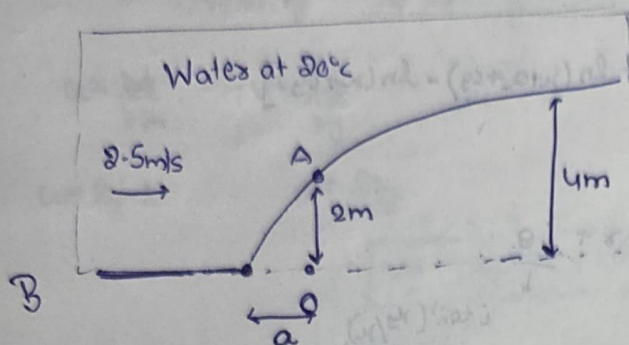 Water at 20°c
2.5m/s
A
2m
4m
B
O
a